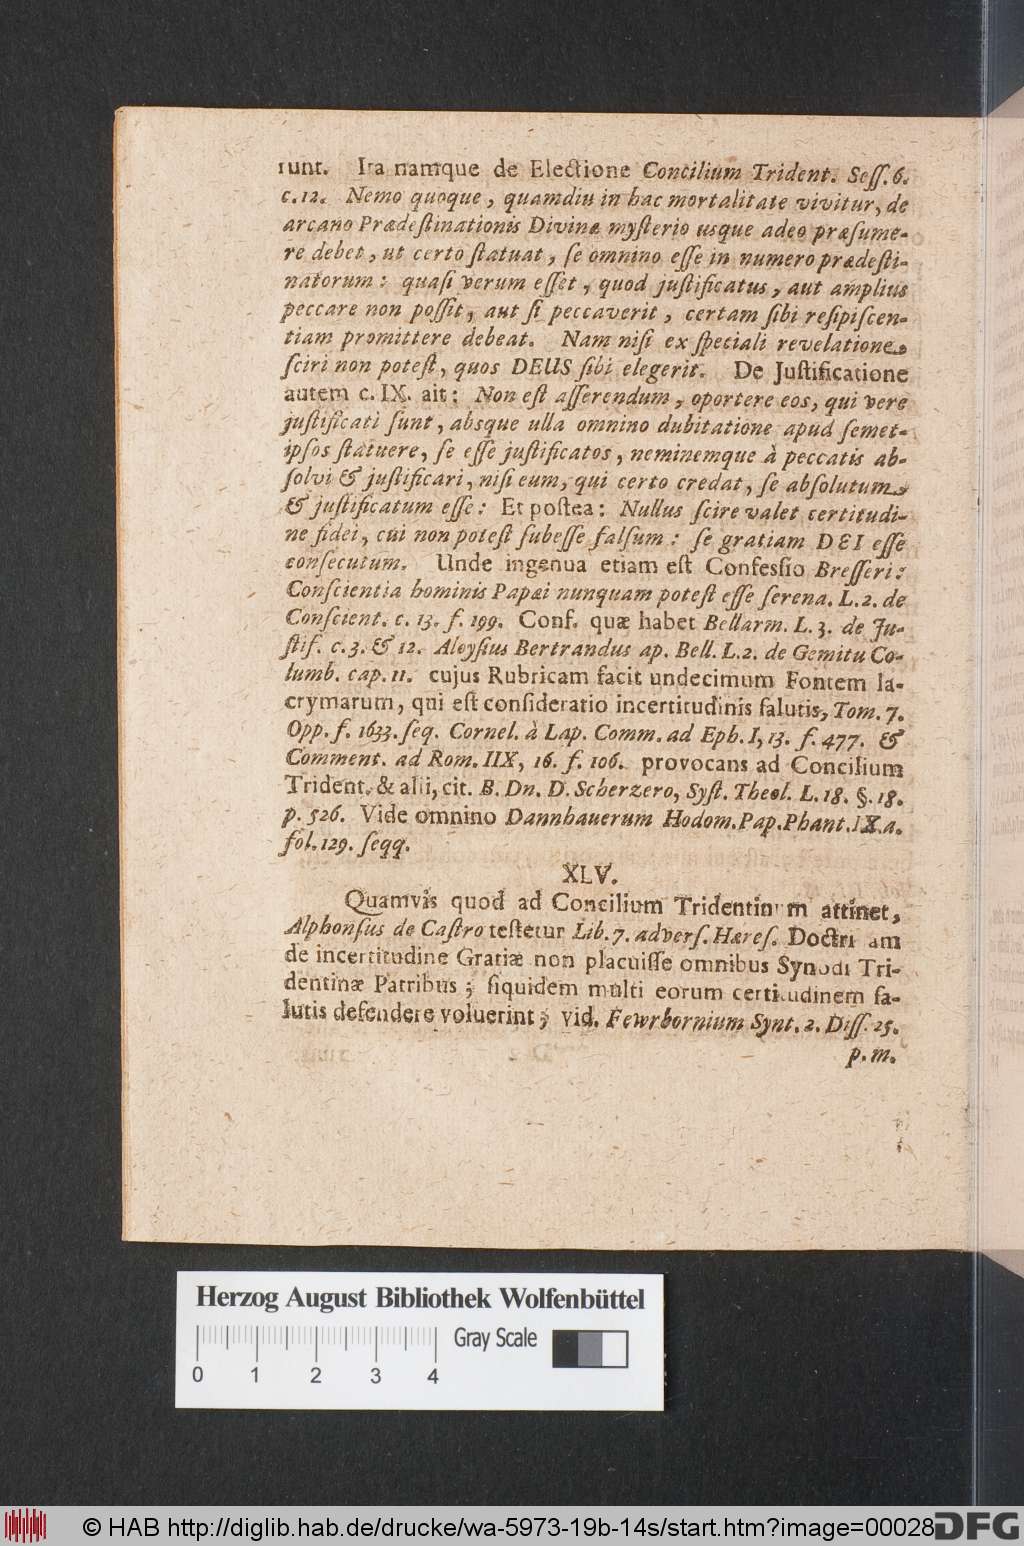 runt. Ita namque de Electione Concilium Trident. Seſſ. 6.
c. 12. Nemo quoque, quamdiu in hac mortalitate vivitur, de
arcano Prædeſtinationis Divinæ myſterio usque adeo præſume-
re debet, ut certo ſtatuat, ſe omnino eſſe in numero prædeſti-
natorum: quaſi verum eſſet, quod juſtificatus, aut amplius
peccare non poſſit, aut ſi peccaverit, certam ſibi reſipiſcen-
tiam promittere debeat. Nam niſi ex ſpeciali revelatione
ſciri non poteſt, quos DEUS ſibi elegerit. De Juſtificatione
autem c. IX. ait: Non eſt aſſerendum, oportere eos, qui vere
juſtificati ſunt, absque ulla omnino dubitatione apud ſemet-
ipſos ſtatuere, ſe eſſe juſtificatos, neminemque à peccatis ab-
ſolvi & juſtificari, niſi eum, qui certo credat, ſe abſolutum
& juſtificatum eſſe: Et poſtea: Nullus ſcire valet certitudi-
ne fidei, cui non poteſt ſubeſſe falſum: ſe gratiam DEI eſſe
conſecutum. Unde ingenua etiam eſt Confeſſio Breſſeri:
Conſcientia hominis Papæi nunquam poteſt eſſe ſerena. L. 2. de
Conſcient. c. 13. f. 199. Conf. quæ habet Bellarm. L. 3. de Ju-
ſtif. c. 3. & 12. Aloyſius Bertrandus ap. Bell. L. 2. de Gemitu Co-
lumb. cap. 11. cujus Rubricam facit undecimum Fontem la-
crymarum, qui eſt conſideratio incertitudinis ſalutis, Tom. 7.
Opp. f. 1633. ſeq. Cornel. à Lap. Comm. ad Eph. I, 13. f. 477. &
Comment. ad Rom. IIX, 16. f. 106. provocans ad Concilium
Trident. & alii, cit. B. Dn. D. Scherzero, Syſt. Theol. L. 18. §. 18.
p. 526. Vide omnino Dannhauerum Hodom. Pap. Phant. IX. a.
fol. 129. ſeqq.
XLV.
Quamvis quod ad Concilium Tridentinum attinet,
Alphonſus de Caſtro teſtetur Lib. 7. adverſ. Hæreſ. Doctrinam
de incertitudine Gratiæ non placuiſſe omnibus Synodi Tri-
dentinæ Patribus; ſiquidem multi eorum certitudinem ſa-
lutis defendere voluerint; vid. Fewrbornium Synt. 2. Diſſ. 25.
p. m.
Herzog August Bibliothek Wolfenbüttel
Gray Scale
0 1 2 3 4
© HAB http://diglib.hab.de/drucke/wa-5973-19b-14s/start.htm?image=00028
DFG